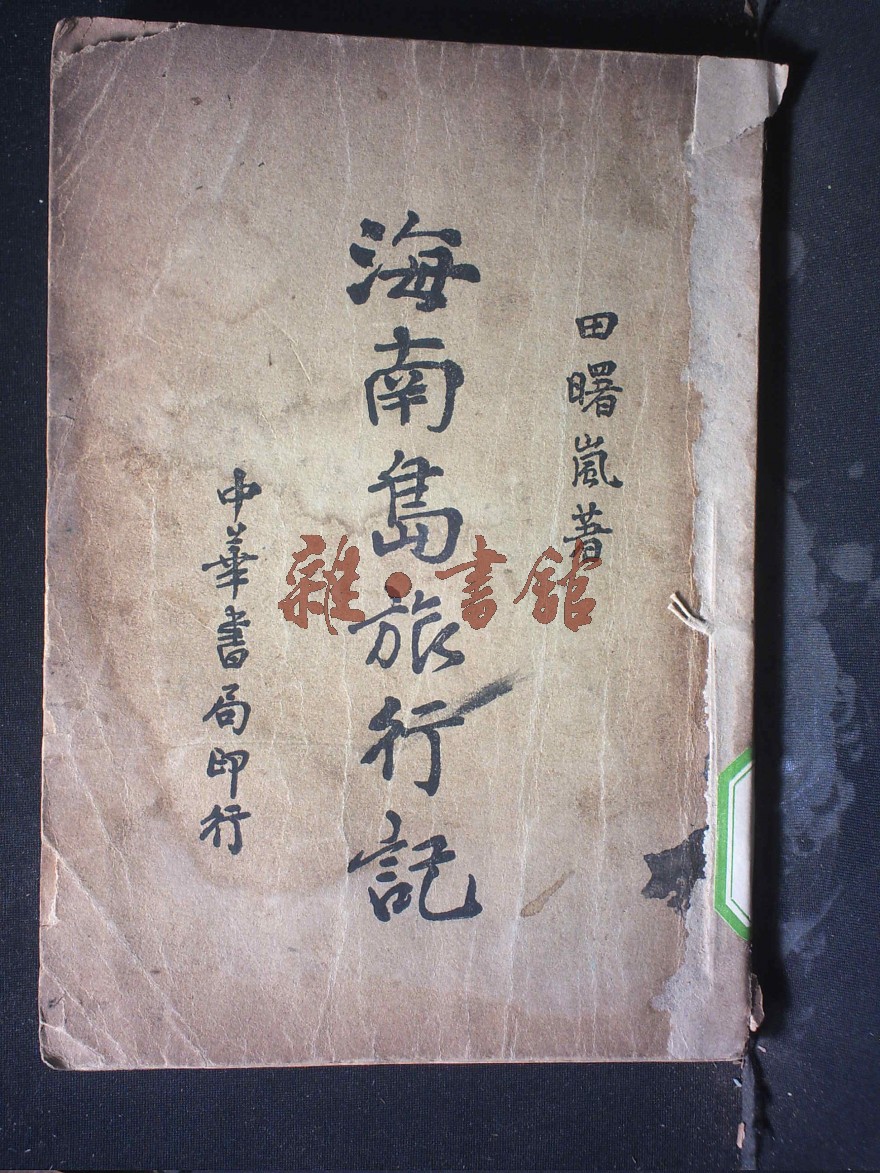 田曙嵐著
海南島旅行記
中華書局印行
雜·書館